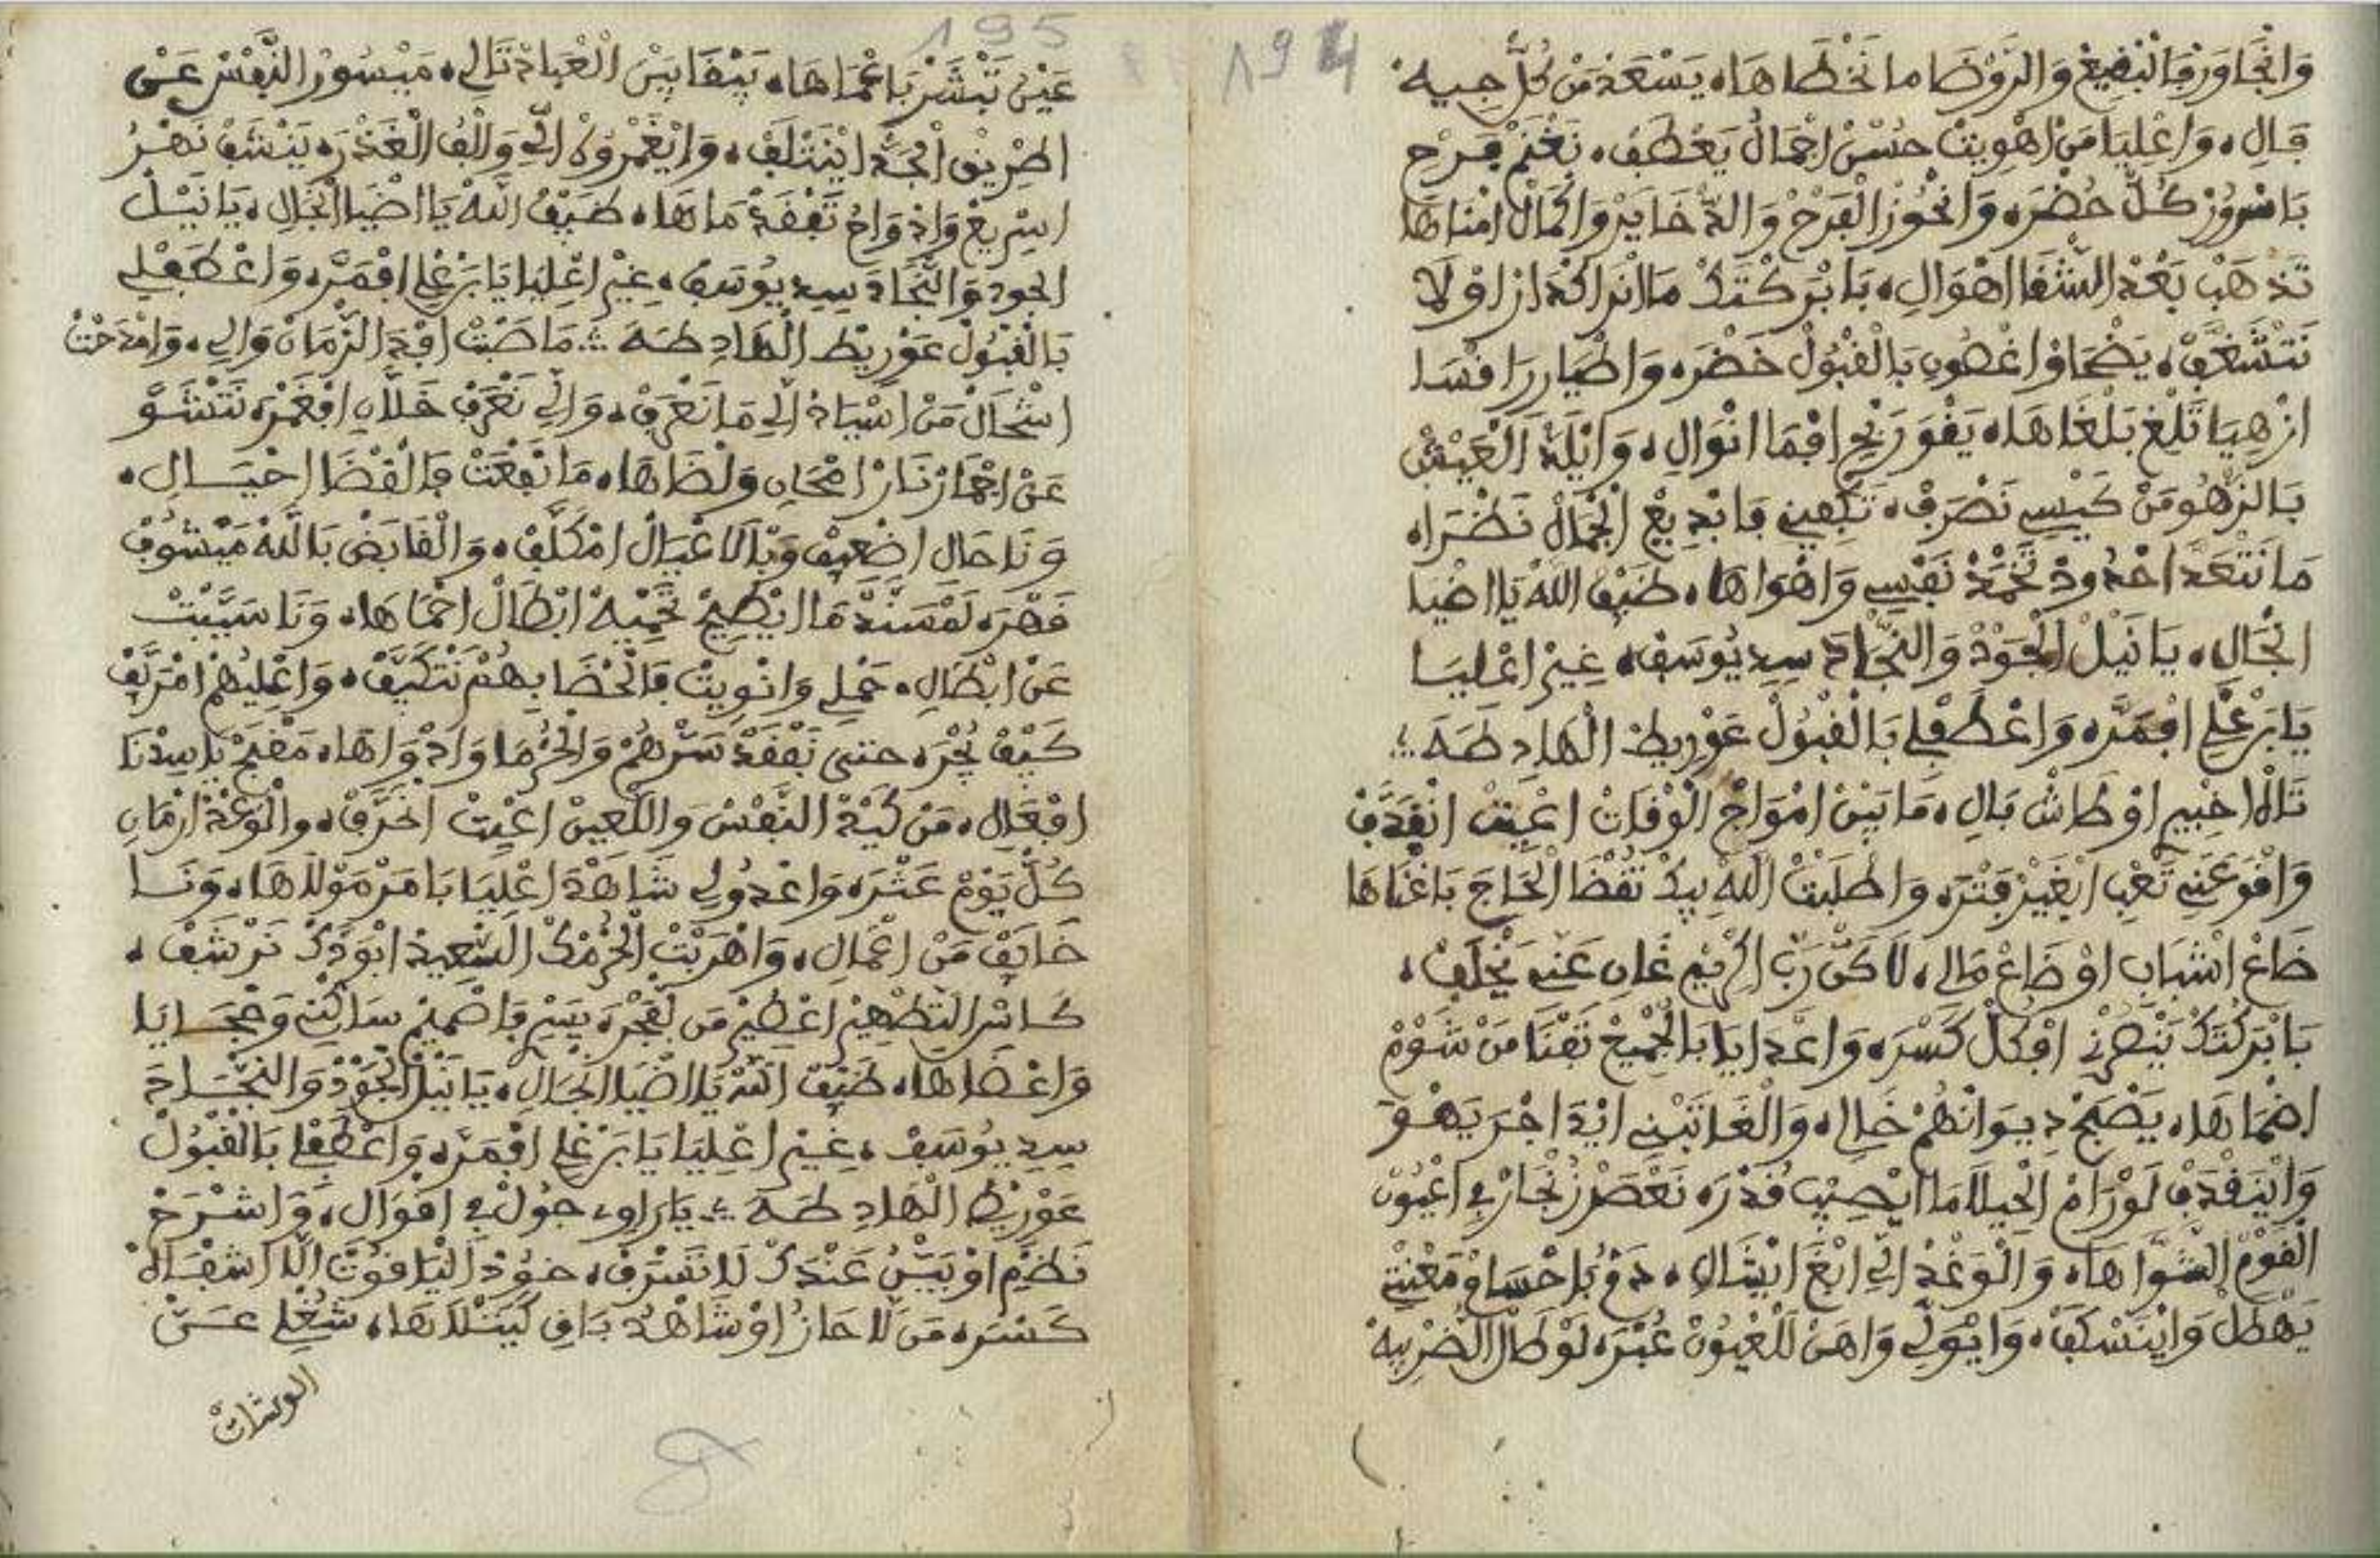 194
وَانْجَاوَرْ فَالْبْقِيعْ وَالرَّوْضَا مَا نَخْطَاهَا، يَسْعَدْ مَنْ كُلّْ جِيهْ
فَالِ، وَاعْلِيَا مَنْ اهْوِيتْ حُسْنْ اجْمَالُ يَعْطَفْ، نَغْنَمْ فَرْحِ
بَاسْرُورْ كُلّْ حُضْرَه وَانْحُوزْ الْفَرْحْ وَالدّْخَايَرْ وَاكْمَالْ امْنَاهَا
تَذْهَبْ بَعْدْ الشّْفَا اهْوَالِ، بَابْرَكْتَكْ مَا انْرَا اكْدَارْ اوْ لَا
نَتْشَغَّفْ، يَضْحَاوْ اغْصُونِ بَالْقْبُولْ خَضْرَه وَاطْيَارْ رَافْسَا
ازْهِيَا تَلْغِ بَلْغَاهَا، يَقْوَ رَبْحِ افْمَا انْوَالِ، وَايْلَذّْ الْعَيْشْ
بَالزّْهُو مَنْ كَيْسِي نَصْرَفْ، تَكْفِينِ فَابْدِيعْ الْجْمَالْ نَظْرَاه
مَا نَتْعَدَّ احْدُودْ تَخْمَدْ نَفْسِي وَاهْوَاهَا، ضَيْفْ اللهْ يَا اضْيَا
انْجَالِ، يَا نَيْلْ الْجُودْ وَالنّْجَادَ سِيدِ يُوسَفْ، غِيرْ اعْلِيَا
يَا بَرْغْلِي افْمَرَّه وَاعْطَفْ لِي بَالْقْبُولْ عَوْرِيطْ الْهَادِ طَهَ
تَالَاهْ اخْبِيرِ اوْ طَاشْ بَالِ، مَا بَيْنْ امْوَاجْ الْوْفَاتْ اعْيِيتْ انْقَدَّفْ
وَاقْوَ عَنِّي تَعْبِ ابْغَيْرْ فَتْرَه وَاطْلَبْتْ اللهْ بِيكْ تُقْضَا الْحَاجَ بَاغْنَاهَا
ضَاعْ اشْبَابِ اوْ ضَاعْ مَالِي، لَاكَنّْ رَبّْ الْكْرِيمْ غَانِ عَنِّي يَخْلَفْ،
بَابْرَكْتَكْ يَنْصَرْنِي افْكُلْ كَسْرَه وَاعْدَايَا بَالْجْمِيعْ تَفْنَا مَنْ شَوْمْ
اضْمَاهَا، يَصْبَحْ دِيوَانْهُمْ خَالِي، وَالْغَانَبْنِي ايْدَ اجْرَ يَهْوَ
وَايْنَقْدَفْ لَوْ رَامْ الْحِيلَا مَا ايْصِيبْ قُدْرَه نَعْصَرْ زُنْجَارْ فِي اعْيُونْ
الْقَوْمْ الشَّوَّاهَا، وَالْوَغْدْ الِّي ابْغَ انْيَالِ، دَقُّ بَاحْسَاوْ مَعْنْتِي
يَهْطَلْ وَايْنَسْكَفْ، وَايْوَلِّي وَاهَنْ لَلْعْيُونْ عُبْرَه لَوْ طَالْ الضْرِيبَهْ
195
عَيْنُ تَبْشَرْ بَاعْمَاهَا، يَبْقَا بَيْنْ الْعْبَادْ تَالِي، مَيْسُورْ النَّفْسْ عَنْ
اطْرِيقْ الْجَدّْ ايْتَتْلَفْ، وَايْغَمْرُوهْ الِّي وَالْفْ الْغَدْرَه يَنْشَفْ نَهْرُ
اسْرِيعْ وَادْوَاحُ تَفْقَدْ مَاهَا، ضَيْفْ اللهْ يَا اضْيَا انْجَالِ، يَا نَيْلْ
الجُودْ وَالنّْجَادَ سِيدِ يُوسَفْ، غِيرْ اعْلِيَا يَا بَرْغْلِي افْمَرَّه وَاعْطَفْ لِي
بَالْقْبُولْ عَوْرِيطْ الْهَادِ طَهَ مَا صَبْتْ افْدَ الزّْمَانْ وَالِي، وَامْدَحْتْ
اشْحَالْ مَنْ اسْيَادْ الِّي مَا نَعْرَفْ، وَالِّي نَعْرَفْ خَلَّانِ افْغَمْرَه نَتْشَوَّ
عَنْ اجْمَارْ نَارْ امْحَانِ وَلْضَاهَا، مَا نَفْعَتْ فَالْقْضَا احْيَالِ،
وَنَا حَالِ اضْعِيفْ وَبْالْاعْيَالْ امْكَلَّفْ، وَالْقَابَضْ بَاللهْ مَيْشُوفْ
قَهْرَه لَمْسَنَّدْ مَا ايْطِيحْ تَحْمِيهْ ابْطَالْ احْمَاهَا، وَنَا سَيَّبْتْ
عَنْ ابْطَالِ، حَمْلِي وَانْوِيتْ فَالْحْضَا بِهُمْ نَتْكَيَّفْ، وَاعْلِيهُمْ امْرَيَّفْ
كَيْفْ نُجْرَه حتى نَفْقَدْ سَرّْهُمْ وَالْحُرْمَا وَادْوَاهَا، مَفْهَمْ يَا سِيدْنَا
افْعَالِي، مَنْ كَيْدْ النَّفْسْ وَاللّْعِينْ اعْيِيتْ انْخَرَّفْ، وَالْوَعْدْ ارْمَانِ
كُلّْ يَوْمْ عَثْرَه وَاعْدُولِي شَاهْدَ اعْلِيَا بَامَرْ مَوْلَاهَا، وَنَا
خَايَفْ مَنْ اعْمَالِ، وَاهْرَبْتْ الْحُرْمَكْ السّْعِيدْ ابْوَدَّكْ نَرْشَفْ،
كَاسْ التّْطْهِيرْ اعْطِيرْ مَن لْفَجْرَه يَسْرِ فَاصْمِيمْ سَاكْنِي وَحْجَايَا
وَاعْضَاهَا، ضَيْفْ اللهْ يَا اضْيَا انْجَالِ، يَا نَيْلْ الْجُودْ وَالنّْجَادَ
سِيدِ يُوسَفْ، غِيرْ اعْلِيَا يَا بَرْغْلِي افْمَرَّه وَاعْطَفْ لِي بَالْقْبُولْ
عَوْرِيطْ الْهَادِ طَهَ يَا رَاوِي جُولْ فِي اقْوَالِ، وَاشْرَحْ
نَظْمِ اوْ بَيَّنُ عَنْدَكْ لَا تَسْرَفْ، خُودْ الْيَاقُوتَ الَّا اشْقَاهْ
كَسْرَه مَن لَّا حَازُ اوْ شَاهْدُ بَاقِي كَيَتْلَاهَا، شُغْلِي عَنْ
الوشات